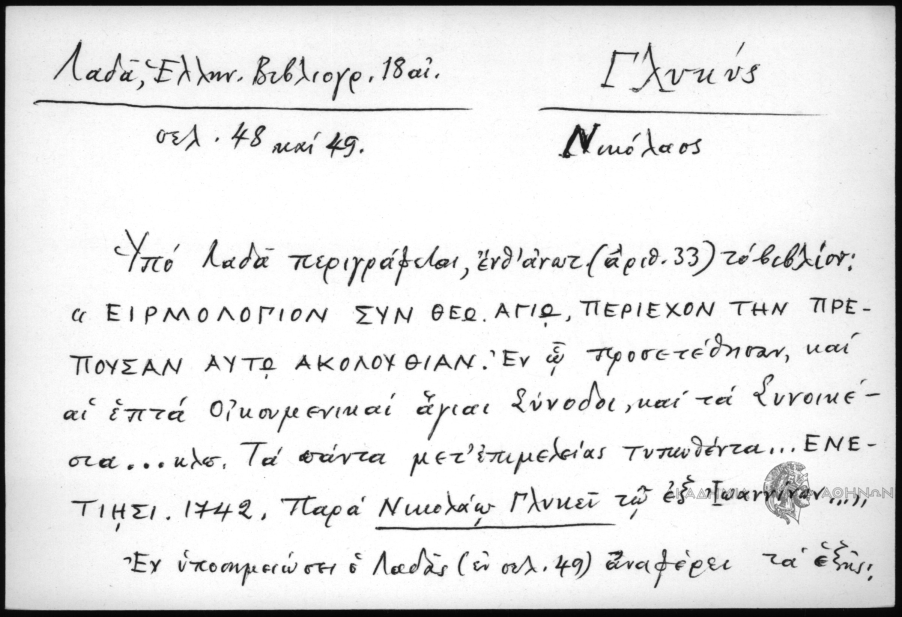 Λαδᾶ, Ἑλλην. Βιβλιογρ. 18 αἰ.
Γλυκύς
σελ. 48 καί 49.
Νικόλαος
Ὑπό Λαδᾶ περιγράφεται, ἔνθ' ἀνωτ. (ἀριθ. 33) τό βιβλίον:
« ΕΙΡΜΟΛΟΓΙΟΝ ΣΥΝ ΘΕῼ. ΑΓΙῼ, ΠΕΡΙΕΧΟΝ ΤΗΝ ΠΡΕ-
ΠΟΥΣΑΝ ΑΥΤῼ ΑΚΟΛΟΥΘΙΑΝ. Ἐν ᾧ προσετέθησαν, καί
αἱ ἑπτά Οἰκουμενικαί ἅγιαι Σύνοδοι, καί τά Συνοικέ-
σια... κλπ. Τά πάντα μετ' ἐπιμελείας τυπωθέντα... ΕΝΕ-
ΤΙῌΣΙ. 1742. Παρά Νικολάῳ Γλυκεῖ τῷ ἐξ Ἰωαννίνων...»,
ΑΚΑΔΗΜΙΑ ΑΘΗΝΩΝ
Ἐν ὑποσημειώσει ὁ Λαδᾶς (ἐν σελ. 49) ἀναφέρει τά ἑξῆς: